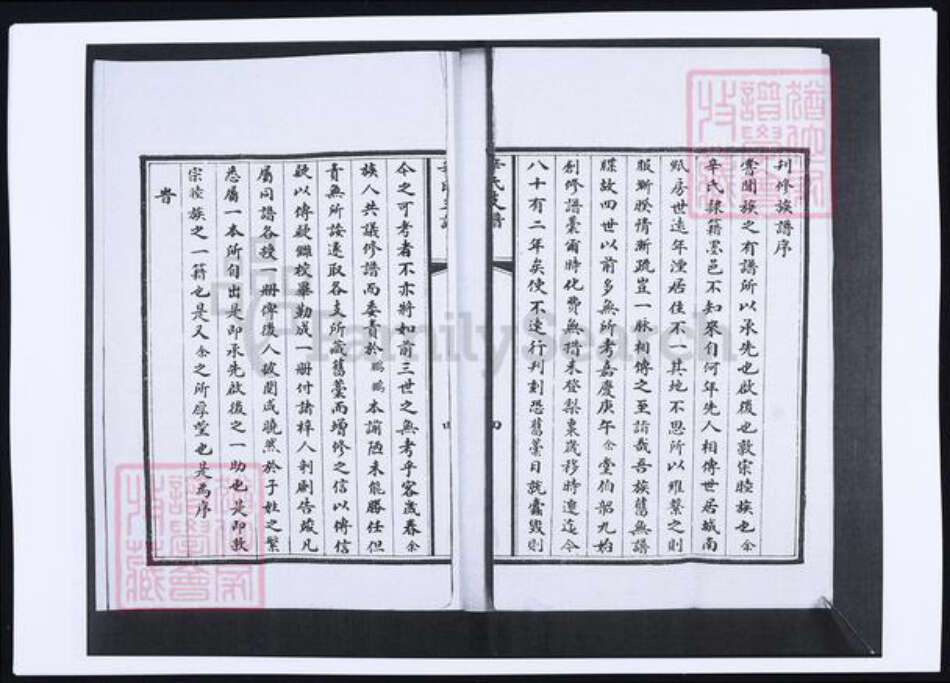 刋修族譜序
嘗聞族之有譜所以承先也啟後也敦宗睦族也余
辛氏隸籍墨邑不知來自何年先人相傳世居城南
紙房世遠年湮居住不一其地不思所以維繫之則
服漸睽情漸疏豈一脉相傳之至誼哉吾族舊無譜
牒故四世以前多無所考嘉慶庚午余堂伯韶九始
創修譜藁爾時化費無措未登梨棗歲移時遷迄今
八十有二年矣使不速行刋刻恐舊藁日就蠹毀則
辛氏支譜
四
今之可考者不亦將如前三世之無考乎客歲春余
族人共議修譜而委責於鵬鵬本謭陋未能勝任但
責無所諉遂取各支所藏舊藁而增修之信以傳信
缺以傳缺讎校畢勒成一册付諸梓人剞劂告竣凡
屬同譜各授一册俾後人披閱咸曉然於子姓之繁
悉屬一本所自出是即承先啟後之一助也是即敦
宗睦族之一籍也是又余之所厚望也是為序
旹
FamilySearch